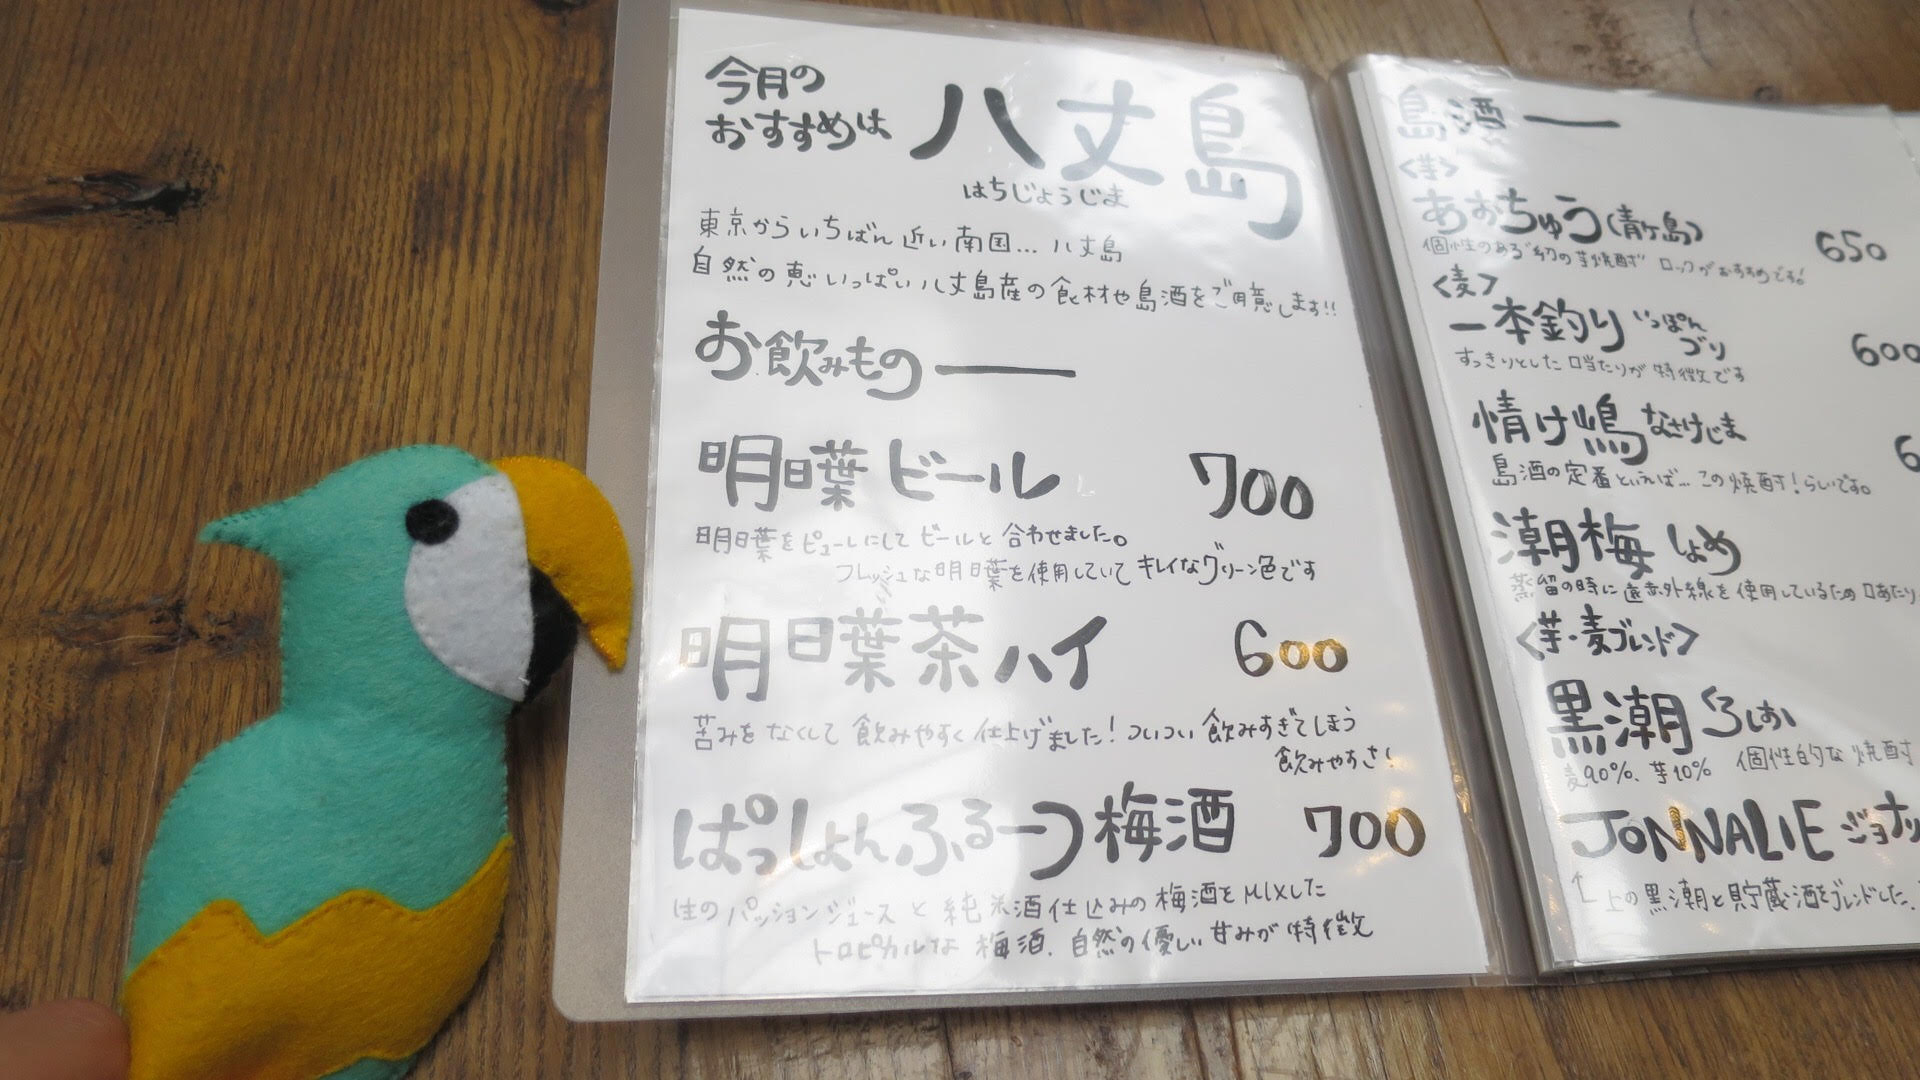 今月の
おすすめは 八丈島
はちじょうじま
東京からいちばん近い南国… 八丈島
自然の恵いっぱい八丈島産の食材や島酒をご用意します!!
お飲みもの
明日葉ビール 700
明日葉をピューレにしてビールと合わせました。
フレッシュな明日葉を使用していてキレイなグリーン色です
明日葉茶ハイ 600
苦みをなくして飲みやすく仕上げました!ついつい飲みすぎてしまう
飲みやすさ!
ぱっしょんふるーつ梅酒 700
生のパッションジュースと純米酒仕込みの梅酒をMIXした
トロピカルな梅酒.自然の優しい甘みが特徴
島酒
<芋>
あおちゅう(青ヶ島) 650
個性のある幻の芋焼酎 ロックがおすすめです!
<麦>
一本釣り いっぽん
づり 600
すっきりとした口当たりが特徴です
情け嶋 なさけじま 6
島酒の定番といえば…この焼酎!らしいです。
潮梅 しょめ
蒸留の時に遠赤外線を使用しているため口あたり
<芋・麦ブレンド>
黒潮 くろしお
麦90%、芋10% 個性的な焼酎
JONNALIE ジョナリ
↑上の黒潮と貯蔵酒をブレンドした.